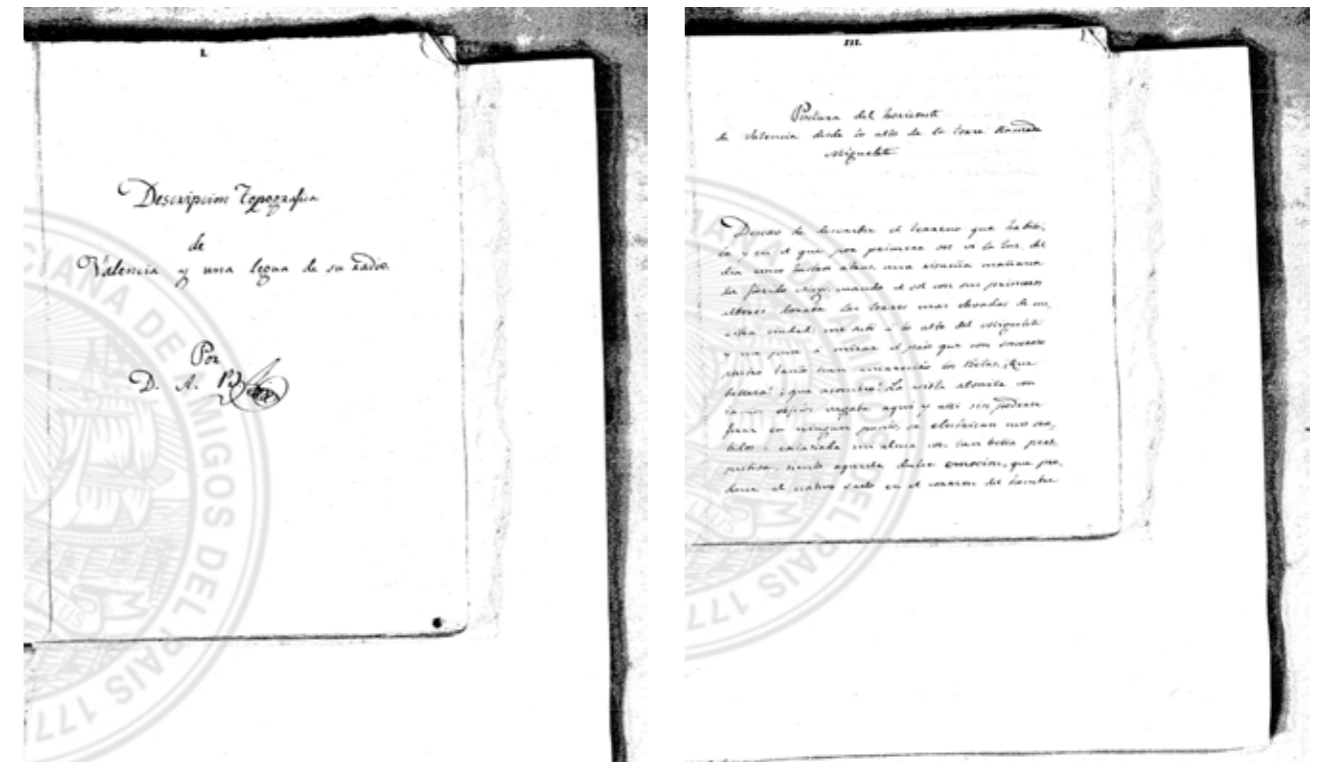 I.
Descripcion Topografica
de
Valencia y una legua de su radio.
Por
D. A. B
III.
Pintura del horizonte
de Valencia desde lo alto de la torre llamada
Miguelete
Deseoso de describir el terreno que habito,
ba y en el que por primera vez vi la luz del
dia cinco lustros atras, una risueña mañana
del florido Mayo, cuando el sol con sus primeros
albores doraba las torres mas elevadas de nu,
estra ciudad; me subi a lo alto del Miguelete
y me puse a mirar el pais que con
tanto han encarecido los Poetas. ¡Que
belleza! ¡que asombro! La vista absorta con
tantos objetos vagaba aqui y alli sin poderse
fixar en ningun punto, se electrizan mis sen,
tidos i extasiada mi alma con tan bella pers,
pectiva, siento aquella dulce emocion, que pro,
duce el nativo suelo en el corazon del hombre
CIANA DE AMIGOS DEL PAIS 177
MANA DE AMIGOS DEL PAIS 177